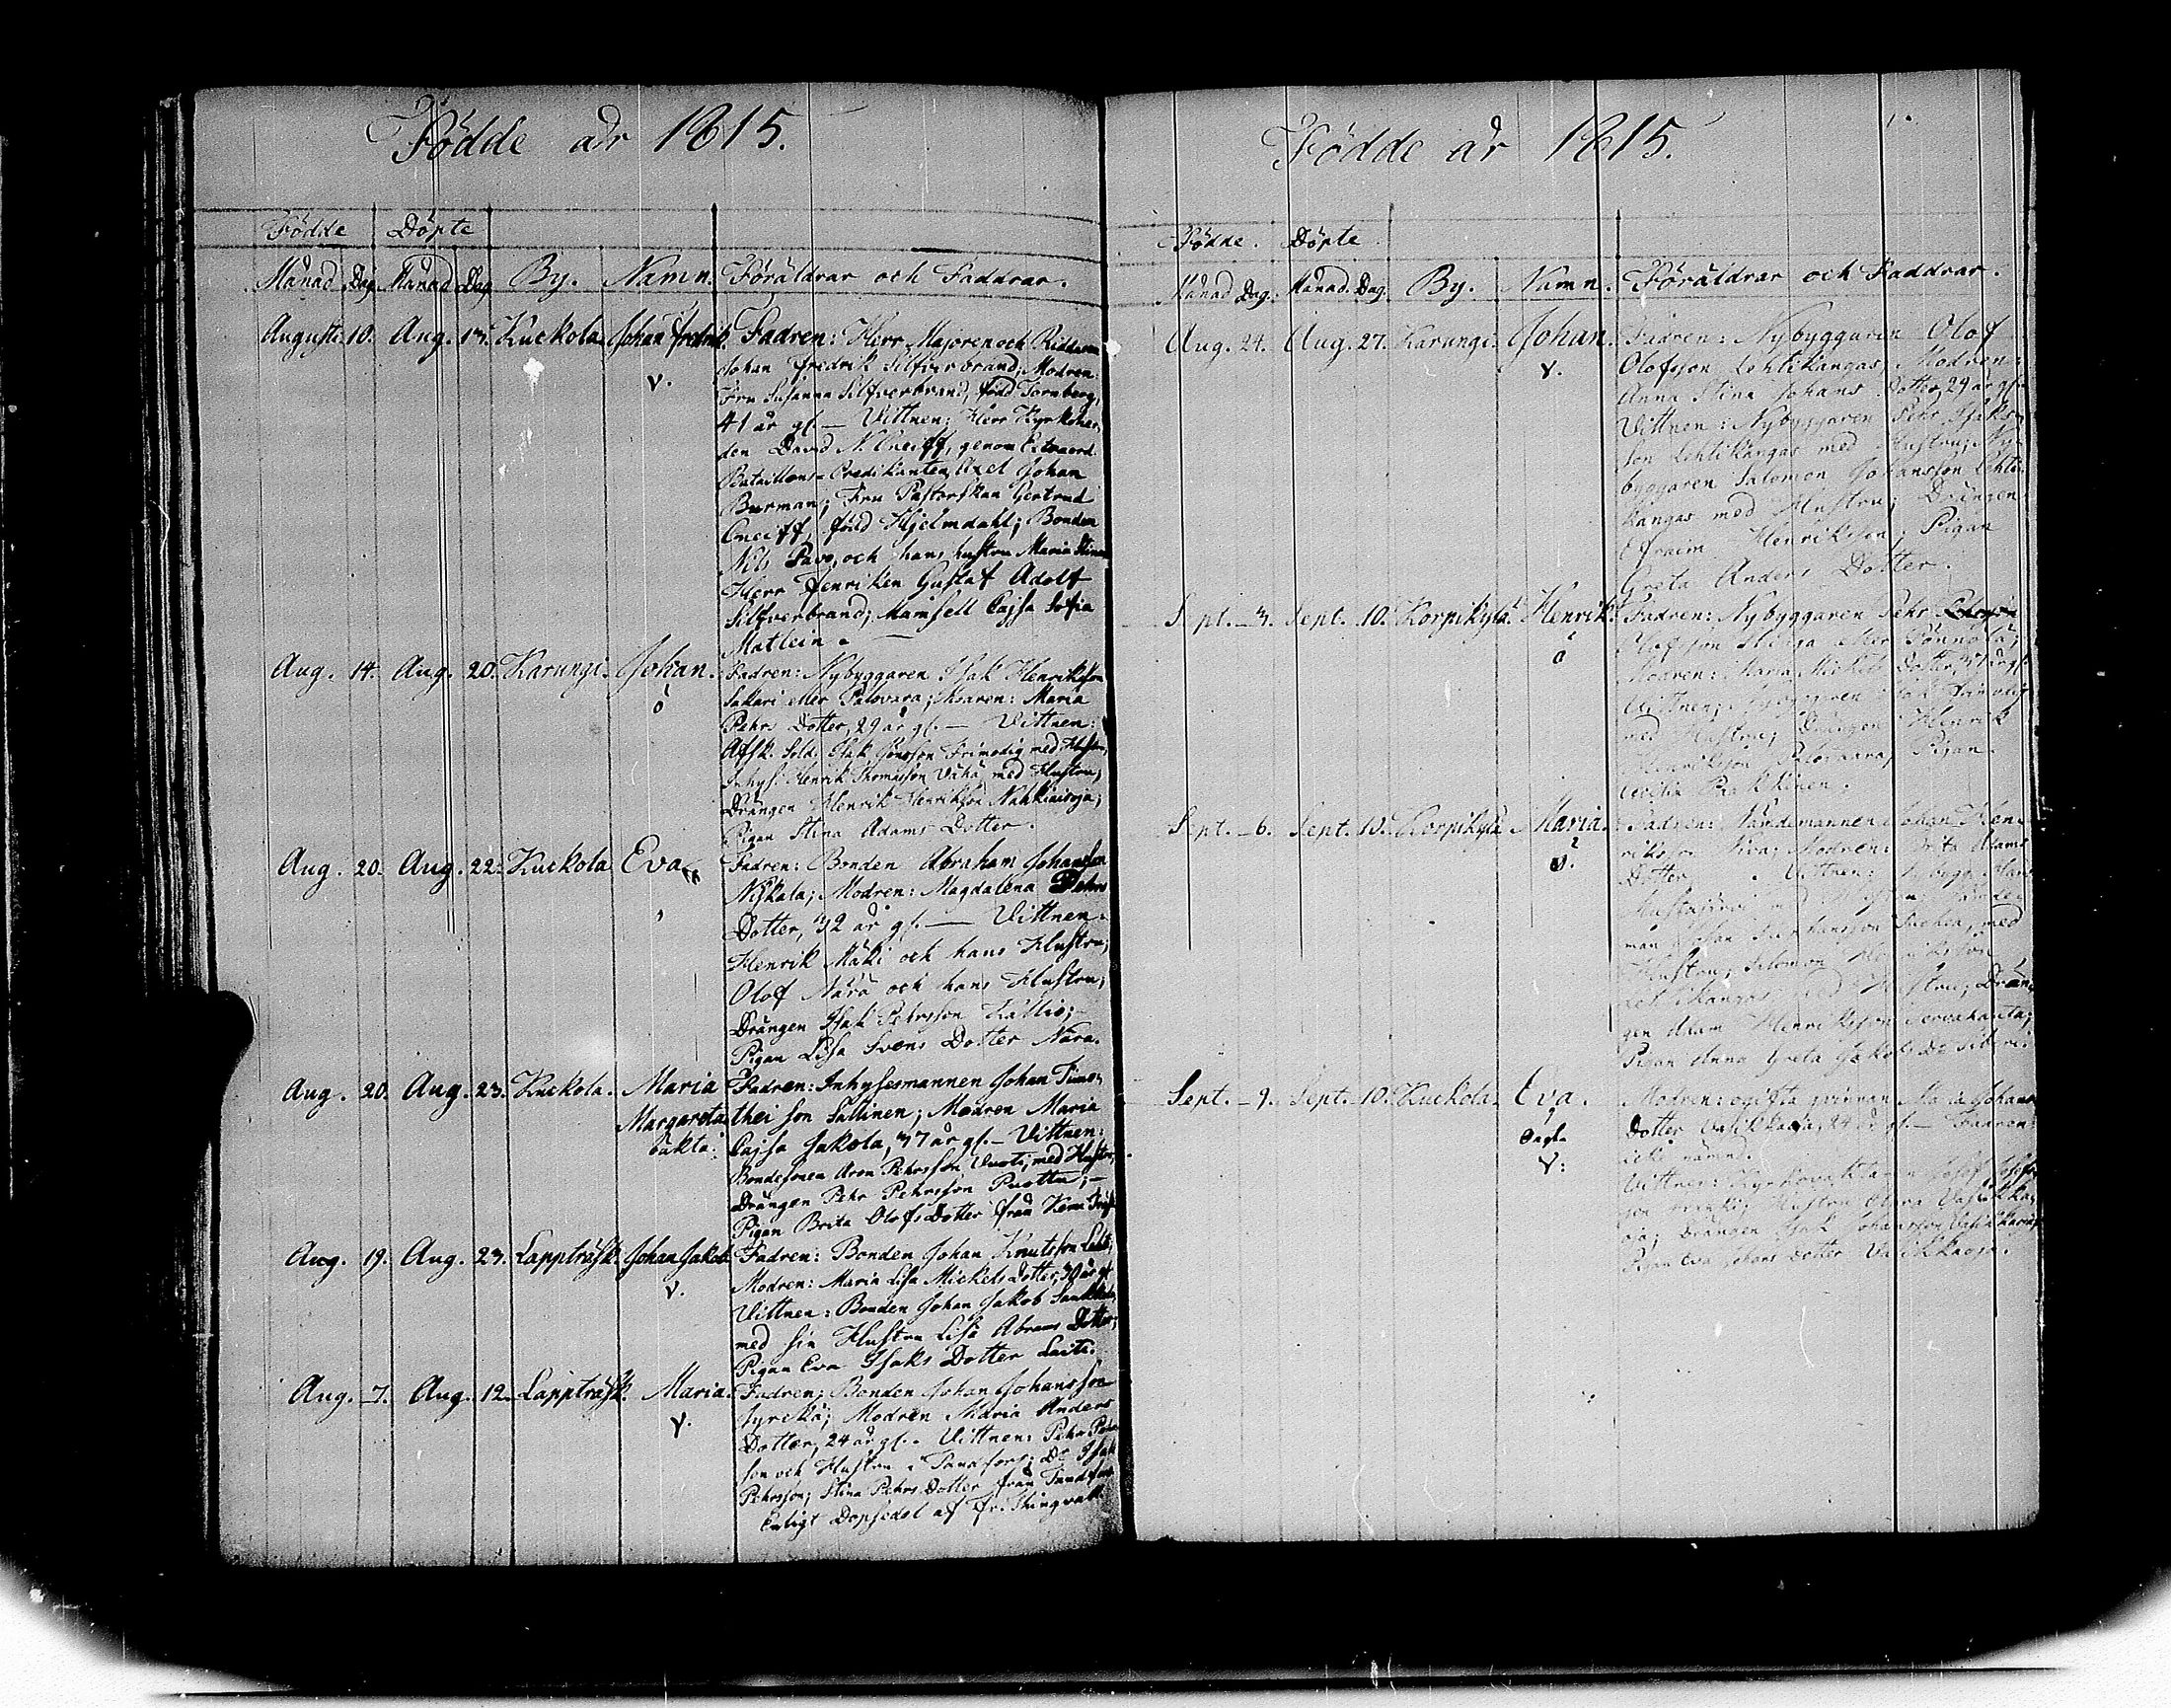 Födde år 1815.
Födde Döpte
Månad Dag Månad Dag By. Namn. Föräldrar och Faddrar.
Augusti 10. Aug. 13. Kuckola Johan Fredrik. Fadren: Herr Majoren och Riddaren
Johan Fredrik Silfverbrand; Modren
v. Fru Susanna Silfverbrand, född Tornberg,
41 år gl. — Vittnen: Herr Kyrkoher-
den David N. Cneiff, genom Extraord.
Bataillons-Predikanten Axel Johan
Burman; Fru Pastorskan Gertrud
Cneiff, född Hjelmdahl; Bonden
Nils Pavo, och hans hustru Maria Stina
Herr Fenriken Gustaf Adolf
Silfverbrand; Mamsell Cajsa Sofia
Matlein.
Aug. 14. Aug. 20. Karungi. Johan. Fadren: Nybyggaren Isak Henriksson
ó Sakari eller Palovara; Modren: Maria
Pehrs Dotter, 29 år gl. — Vittnen:
Afsk. Sold. Isak Jönsson Frimodig med Hustru,
Inhys. Henrik Thomasson Vähä med Hustru;
Drängen Henrik Henriksson Nahkiaisoja;
Pigan Stina Adams Dotter.
Aug. 20. Aug. 22. Kuckola Eva Fadren: Bonden Abraham Johansson
Niskala; Modren: Magdalena Pehrs
Dotter, 32 år gl. — Vittnen.
Henrik Mäki och hans Hustru;
Olof Nära och hans Hustru;
Drängen Isak Pehrsson Kallio;
Pigan Lisa Svens Dotter Nära.
Aug. 20. Aug. 23. Kuckola. Maria Fadren: Inhysesmannen Johan Timo-
Margareta thei son Sallinen; Modren Maria
oäkta Cajsa Jakola, 37 år gl. — Vittnen:
Bondesonen Aron Pehrsson Vuoti, med Hustru,
Drängen Pehr Pehrsson Ruottu; —
Pigan Brita Olofs Dotter från Kemi
Aug. 19. Aug. 23. Lappträsk. Johan Jakob Fadren: Bonden Johan Knutsson
v. Modren: Maria Lisa Mickels Dotter, 30 år gl
Vittnen: Bonden Johan Jakob
med sin Hustru Lisa Abrams Dotter;
Pigan Eva Isaks Dotter Laiti.
Aug. 7. Aug. 12. Lappträsk. Maria. Fadren; Bonden Johan Johansson
v. Jyrckä; Modren Maria Anders
Dotter, 24 år gl. Vittnen: Pehr
son och Hustru; Dr Isak
Pehrsson; Stina Pehrs Dotter från
Enligt Dopsedel af Fr.
Födde år 1815.
Födde. Döpte.
Månad Dag. Månad. Dag. By. Namn. Föräldrar och Faddrar.
Aug. 24. Aug. 27. Karungi. Johan. Fadren: Nybyggaren Olof
v. Olofsson Lehtikangas; Modren:
Anna Stina Johans Dotter, 29 år gl.
Vittnen: Nybyggaren Pehr Isaks-
son Lehtikangas med Hustru; Ny-
byggaren Salomon Johansson Lehti-
kangas med Hustru; Drängen
Efraim Henriksson; Pigan
Greta Anders Dotter.
Sept. 3. Sept. 10. Korpikylä. Henrik. Fadren: Nybyggaren Pehr
ó Olofsson eller
Modren: Maria Mickels Dotter, 37 år gl.
Vittnen: Nybyggaren Isak Frimodig
med Hustru; Drängen Henrik
Henriksson Palovaara; Pigan
Cecilia
Sept. 6. Sept. 10. Korpikylä Maria. Fadren: Nämdemannen Johan Hen-
v. riksson; Modren: Brita Adams
Dotter. Vittnen: Nybygg. Hans
med Hustru; Nämde-
man Johan med
Hustru; Salomon
Lehtikangas med Hustru; Drän-
gen Adam Henriksson
Pigan Anna Greta Jakobs Dr
Sept. 9. Sept. 10. Kuckola. Eva. Modren: ogifta qvinnan Maria Johans
oägta Dotter Vasikkaoja, 24 år gl. — Fadren
v: icke nämnd.
Vittnen: Kyrkovaktaren Josef
son Hustru Clara Vasikka-
oja; Drängen Isak Johansson Vasikkaoja;
Pigan Eva Johans Dotter Vasikkaoja.